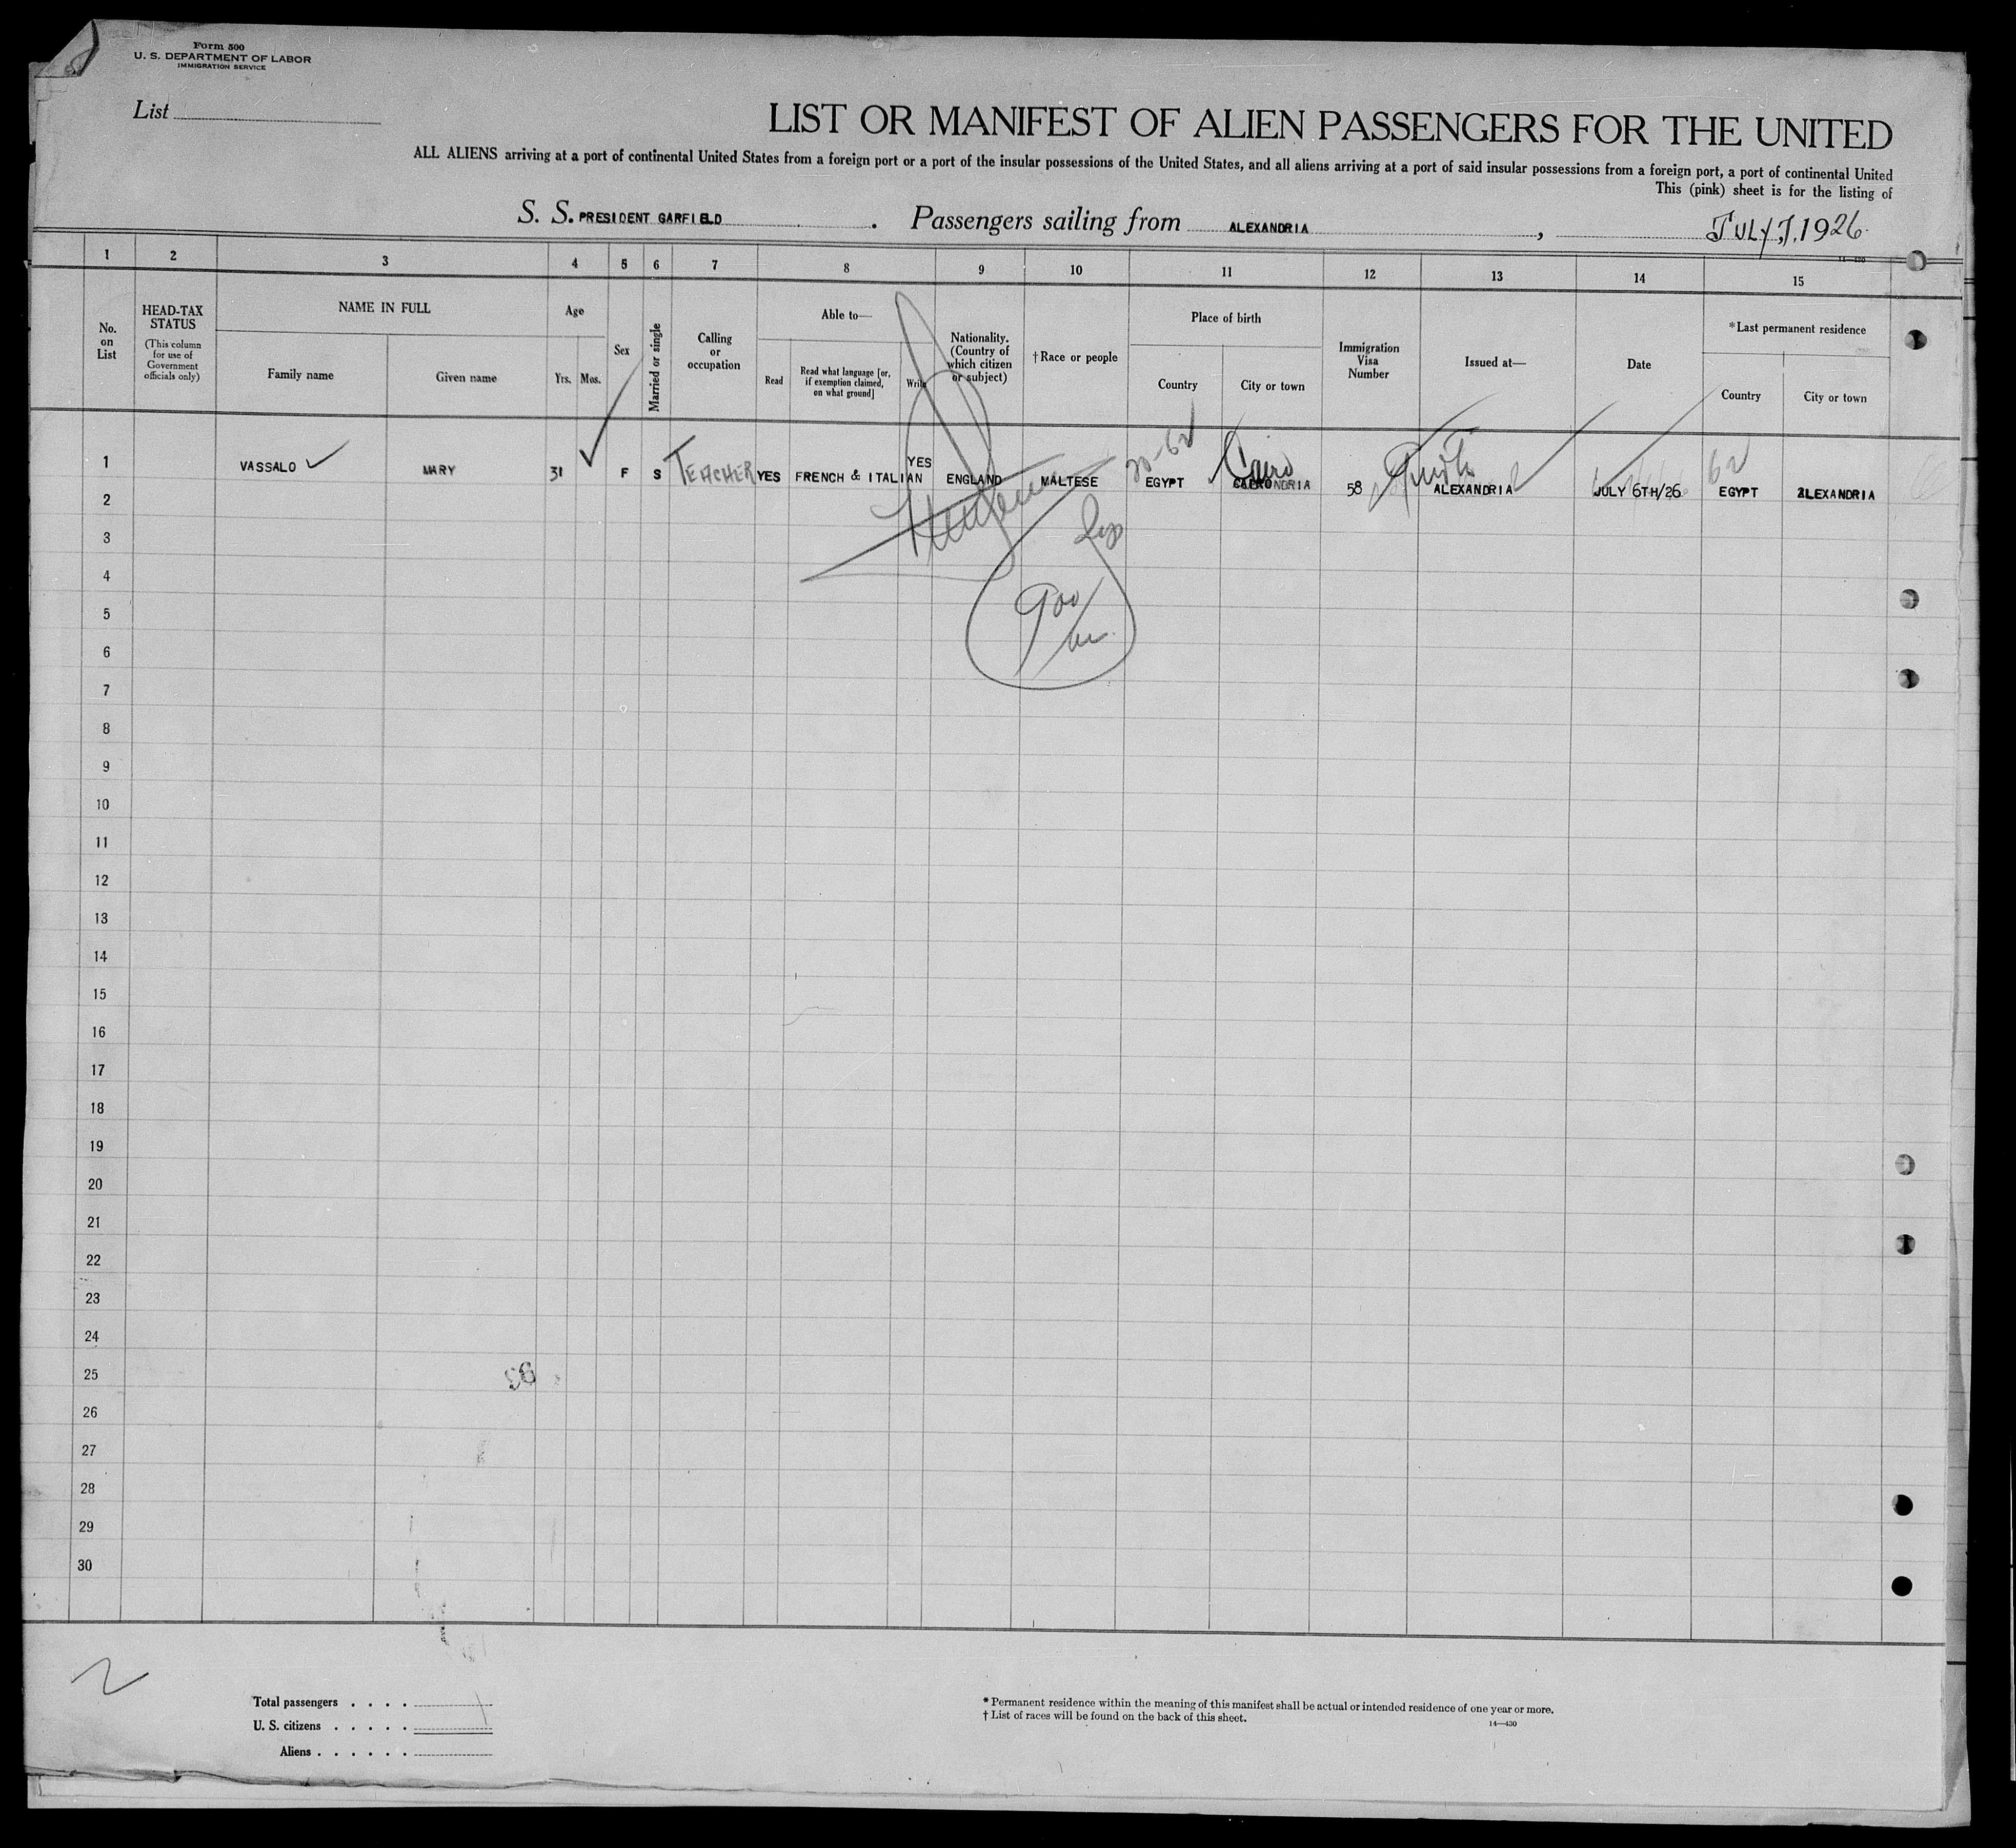 Form 500
U. S. DEPARTMENT OF LABOR
IMMIGRATION SERVICE
List
LIST OR MANIFEST OF ALIEN PASSENGERS FOR THE UNITED
ALL ALIENS arriving at a port of continental United States from a foreign port or a port of the insular possessions of the United States, and all aliens arriving at a port of said insular possessions from a foreign port, a port of continental United
This (pink) sheet is for the listing of
S. S. PRESIDENT GARFIELD . Passengers sailing from ALEXANDRIA , JULY 7, 1926
1 2 3 4 5 6 7 8 9 10 11 12 13 14 15
No. on List
HEAD-TAX STATUS
(This column for use of Government officials only)
NAME IN FULL
Family name
Given name
Age
Yrs.
Mos.
Sex
Married or single
Calling or occupation
Able to—
Read
Read what language [or, if exemption claimed, on what ground]
Write
Nationality. (Country of which citizen or subject)
†Race or people
Place of birth
Country
City or town
Immigration Visa Number
Issued at—
Date
*Last permanent residence
Country
City or town
1 VASSALO MARY 31 F S TEACHER YES FRENCH & ITALIAN YES ENGLAND MALTESE EGYPT Cairo 58 ALEXANDRIA JULY 6TH/26 EGYPT ALEXANDRIA
20-62
62
2
3
4
5
6
7
8
9
10
11
12
13
14
15
16
17
18
19
20
21
22
23
24
25
26
27
28
29
30
Total passengers . . . .
U. S. citizens . . . . .
Aliens . . . . . .
* Permanent residence within the meaning of this manifest shall be actual or intended residence of one year or more.
† List of races will be found on the back of this sheet.
14—430